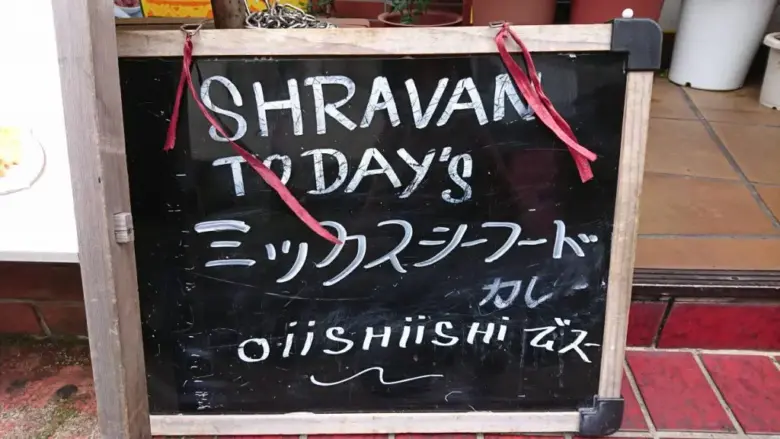 SHRAVAN
TODAY'S
ミックスシーフード
カレー
OiiSHiiSHi でス~